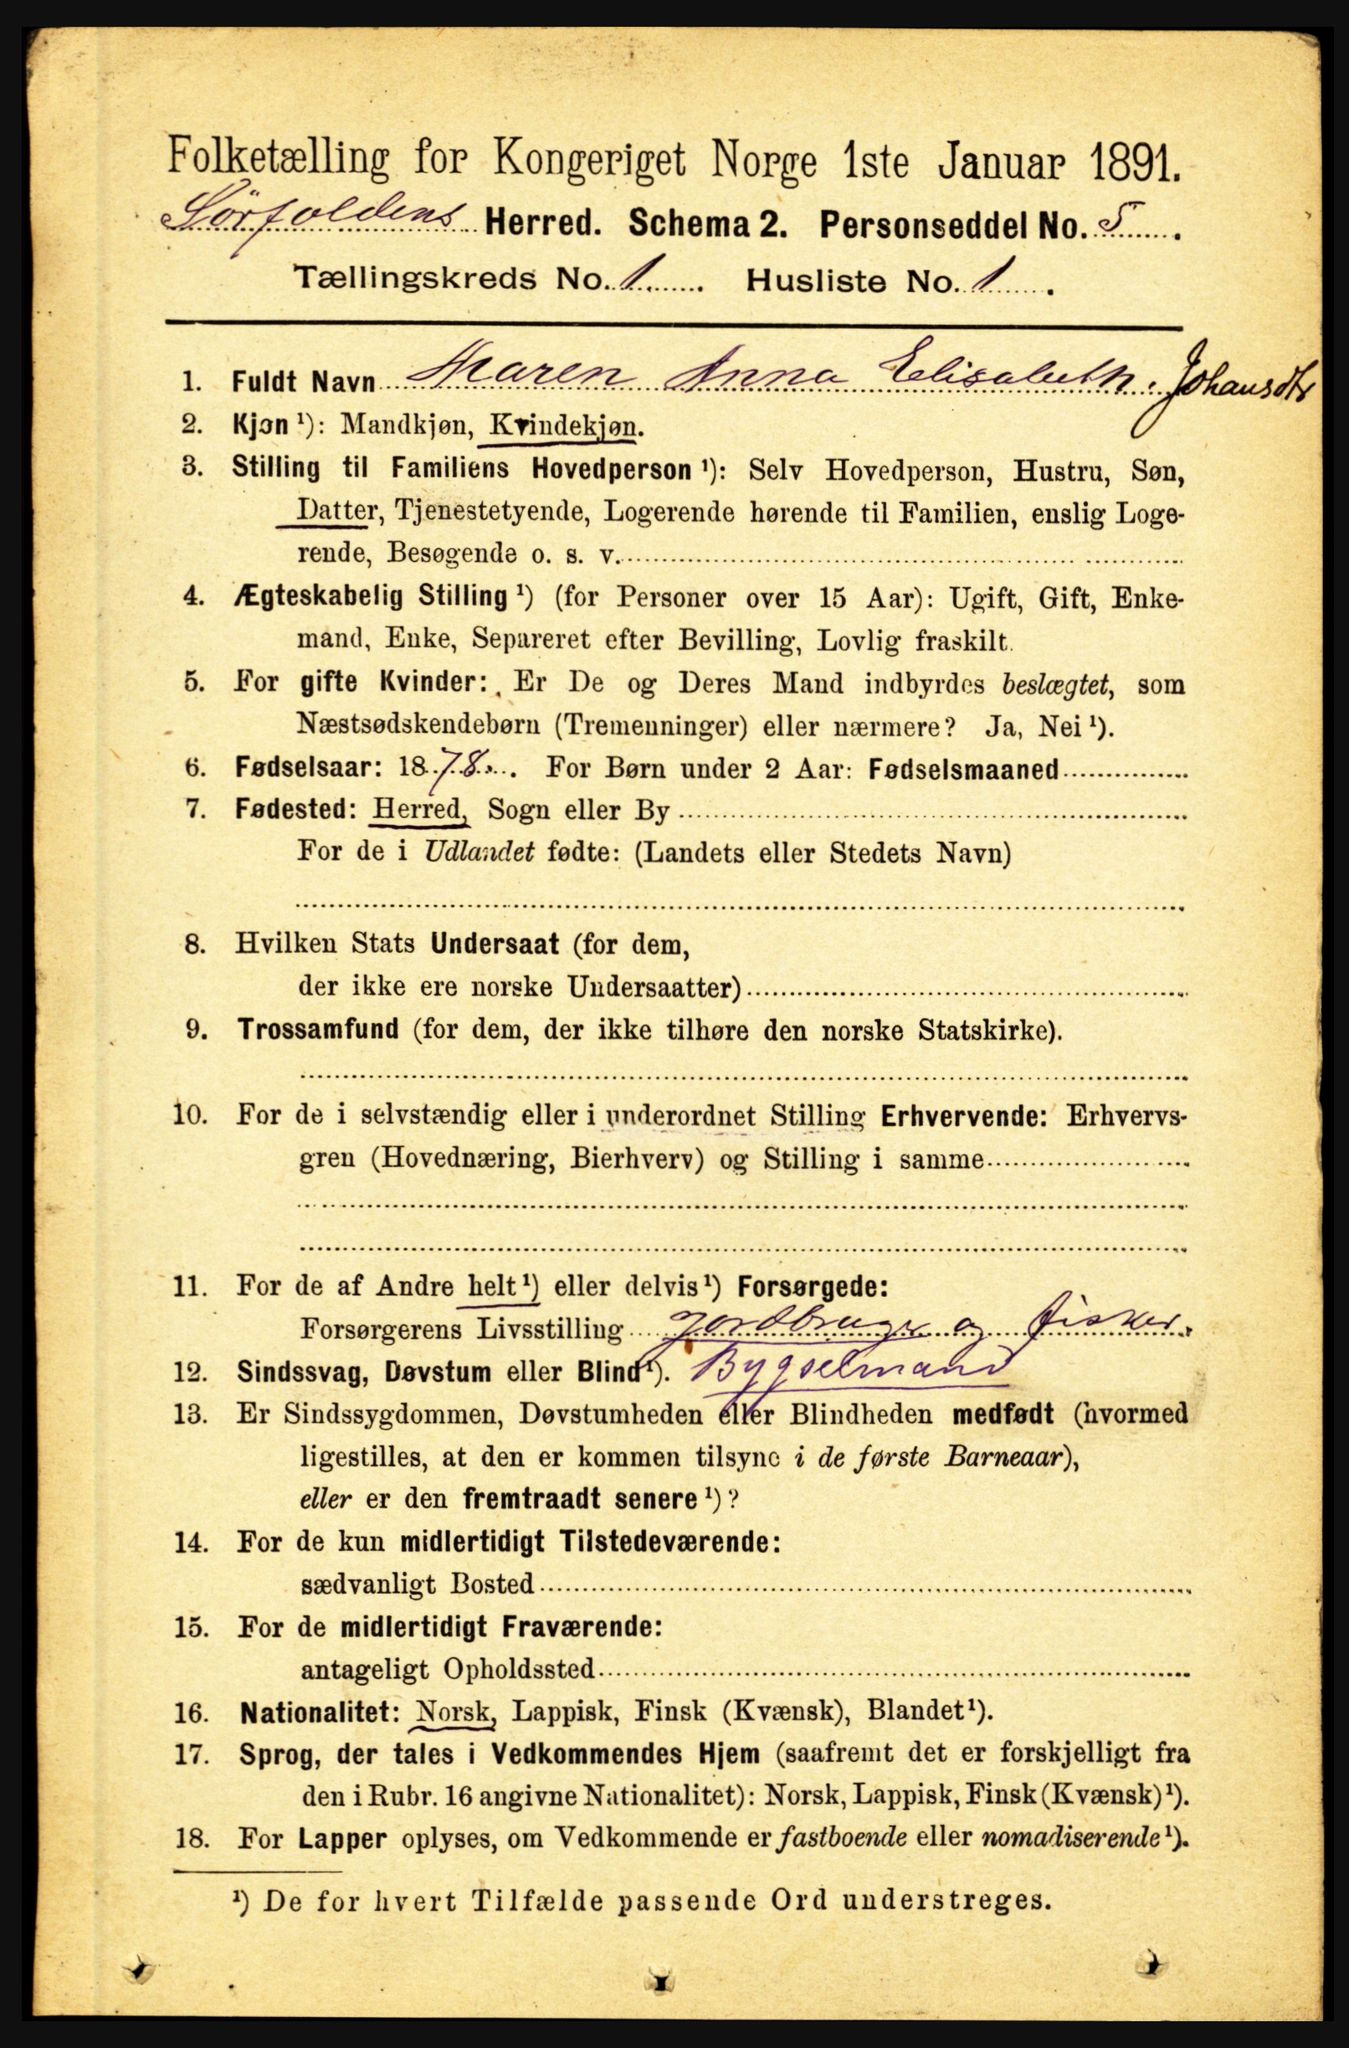 Folketælling for Kongeriget Norge 1ste Januar 1891.
Sørfoldens Herred. Schema 2. Personseddel No. 5.
Tællingskreds No. 1. Husliste No. 1.
1. Fuldt Navn Maren Anna Elisabeth. Johansdtr
2. Kjøn ¹): Mandkjøn, Kvindekjøn.
3. Stilling til Familiens Hovedperson ¹): Selv Hovedperson, Hustru, Søn,
Datter, Tjenestetyende, Logerende hørende til Familien, enslig Loge-
rende, Besøgende o. s. v.
4. Ægteskabelig Stilling ¹) (for Personer over 15 Aar): Ugift, Gift, Enke-
mand, Enke, Separeret efter Bevilling, Lovlig fraskilt.
5. For gifte Kvinder: Er De og Deres Mand indbyrdes beslægtet, som
Næstsødskendebørn (Tremenninger) eller nærmere? Ja, Nei ¹).
6. Fødselsaar: 1878. For Børn under 2 Aar: Fødselsmaaned
7. Fødested: Herred, Sogn eller By
For de i Udlandet fødte: (Landets eller Stedets Navn)
8. Hvilken Stats Undersaat (for dem,
der ikke ere norske Undersaatter)
9. Trossamfund (for dem, der ikke tilhøre den norske Statskirke).
10. For de i selvstændig eller i underordnet Stilling Erhvervende: Erhvervs-
gren (Hovednæring, Bierhverv) og Stilling i samme
11. For de af Andre helt ¹) eller delvis ¹) Forsørgede:
Forsørgerens Livsstilling Jordbruger og Fisker.
12. Sindssvag, Døvstum eller Blind ¹). Bygselmand
13. Er Sindssygdommen, Døvstumheden eller Blindheden medfødt (hvormed
ligestilles, at den er kommen tilsync i de første Barneaar),
eller er den fremtraadt senere ¹)?
14. For de kun midlertidigt Tilstedeværende:
sædvanligt Bosted
15. For de midlertidigt Fraværende:
antageligt Opholdssted
16. Nationalitet: Norsk, Lappisk, Finsk (Kvænsk), Blandet ¹).
17. Sprog, der tales i Vedkommendes Hjem (saafremt det er forskjelligt fra
den i Rubr. 16 angivne Nationalitet): Norsk, Lappisk, Finsk (Kvænsk) ¹).
18. For Lapper oplyses, om Vedkommende er fastboende eller nomadiserende ¹).
¹) De for hvert Tilfælde passende Ord understreges.